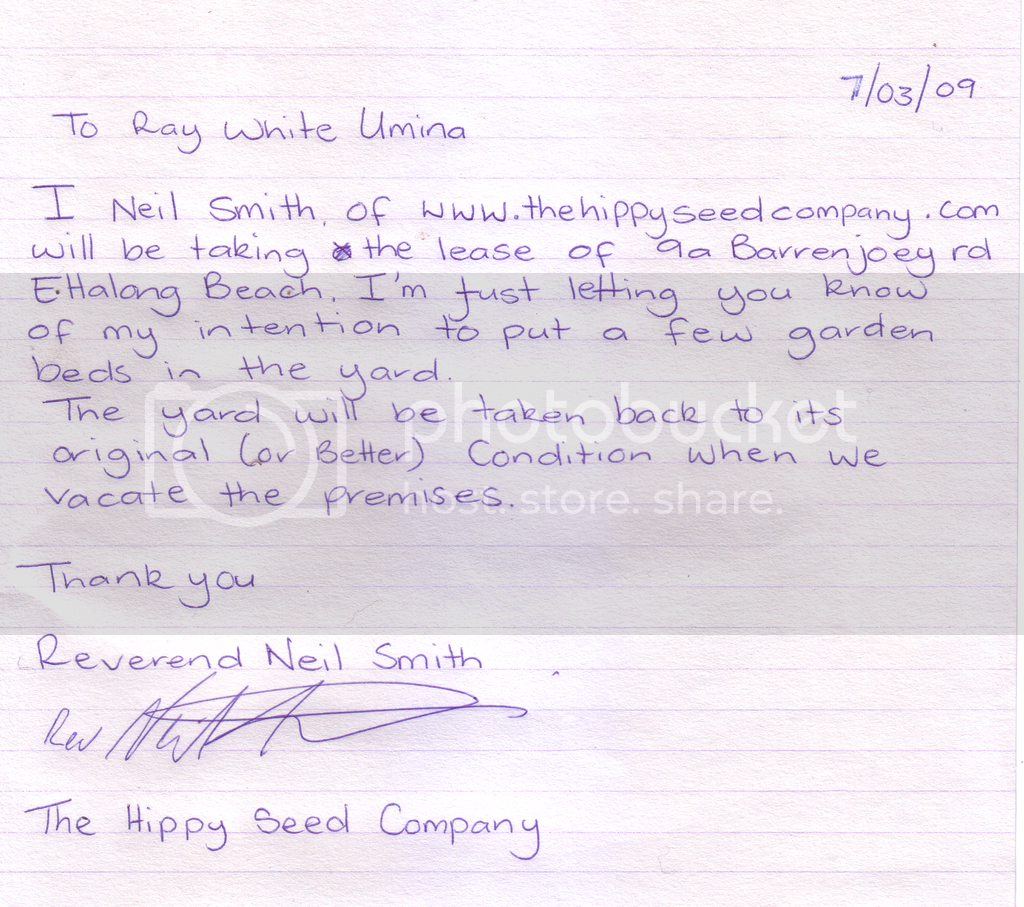 7/03/09
To Ray White Umina
I Neil Smith, of www.thehippyseedcompany.com
will be taking the lease of 9a Barrenjoey rd
Ettalong Beach. I'm just letting you know
of my intention to put a few garden
beds in the yard.
The yard will be taken back to its
photobucket
original (or Better) Condition when we
vacate the premises.
host. store. share.
Thank you
Reverend Neil Smith
Rev
The Hippy Seed Company